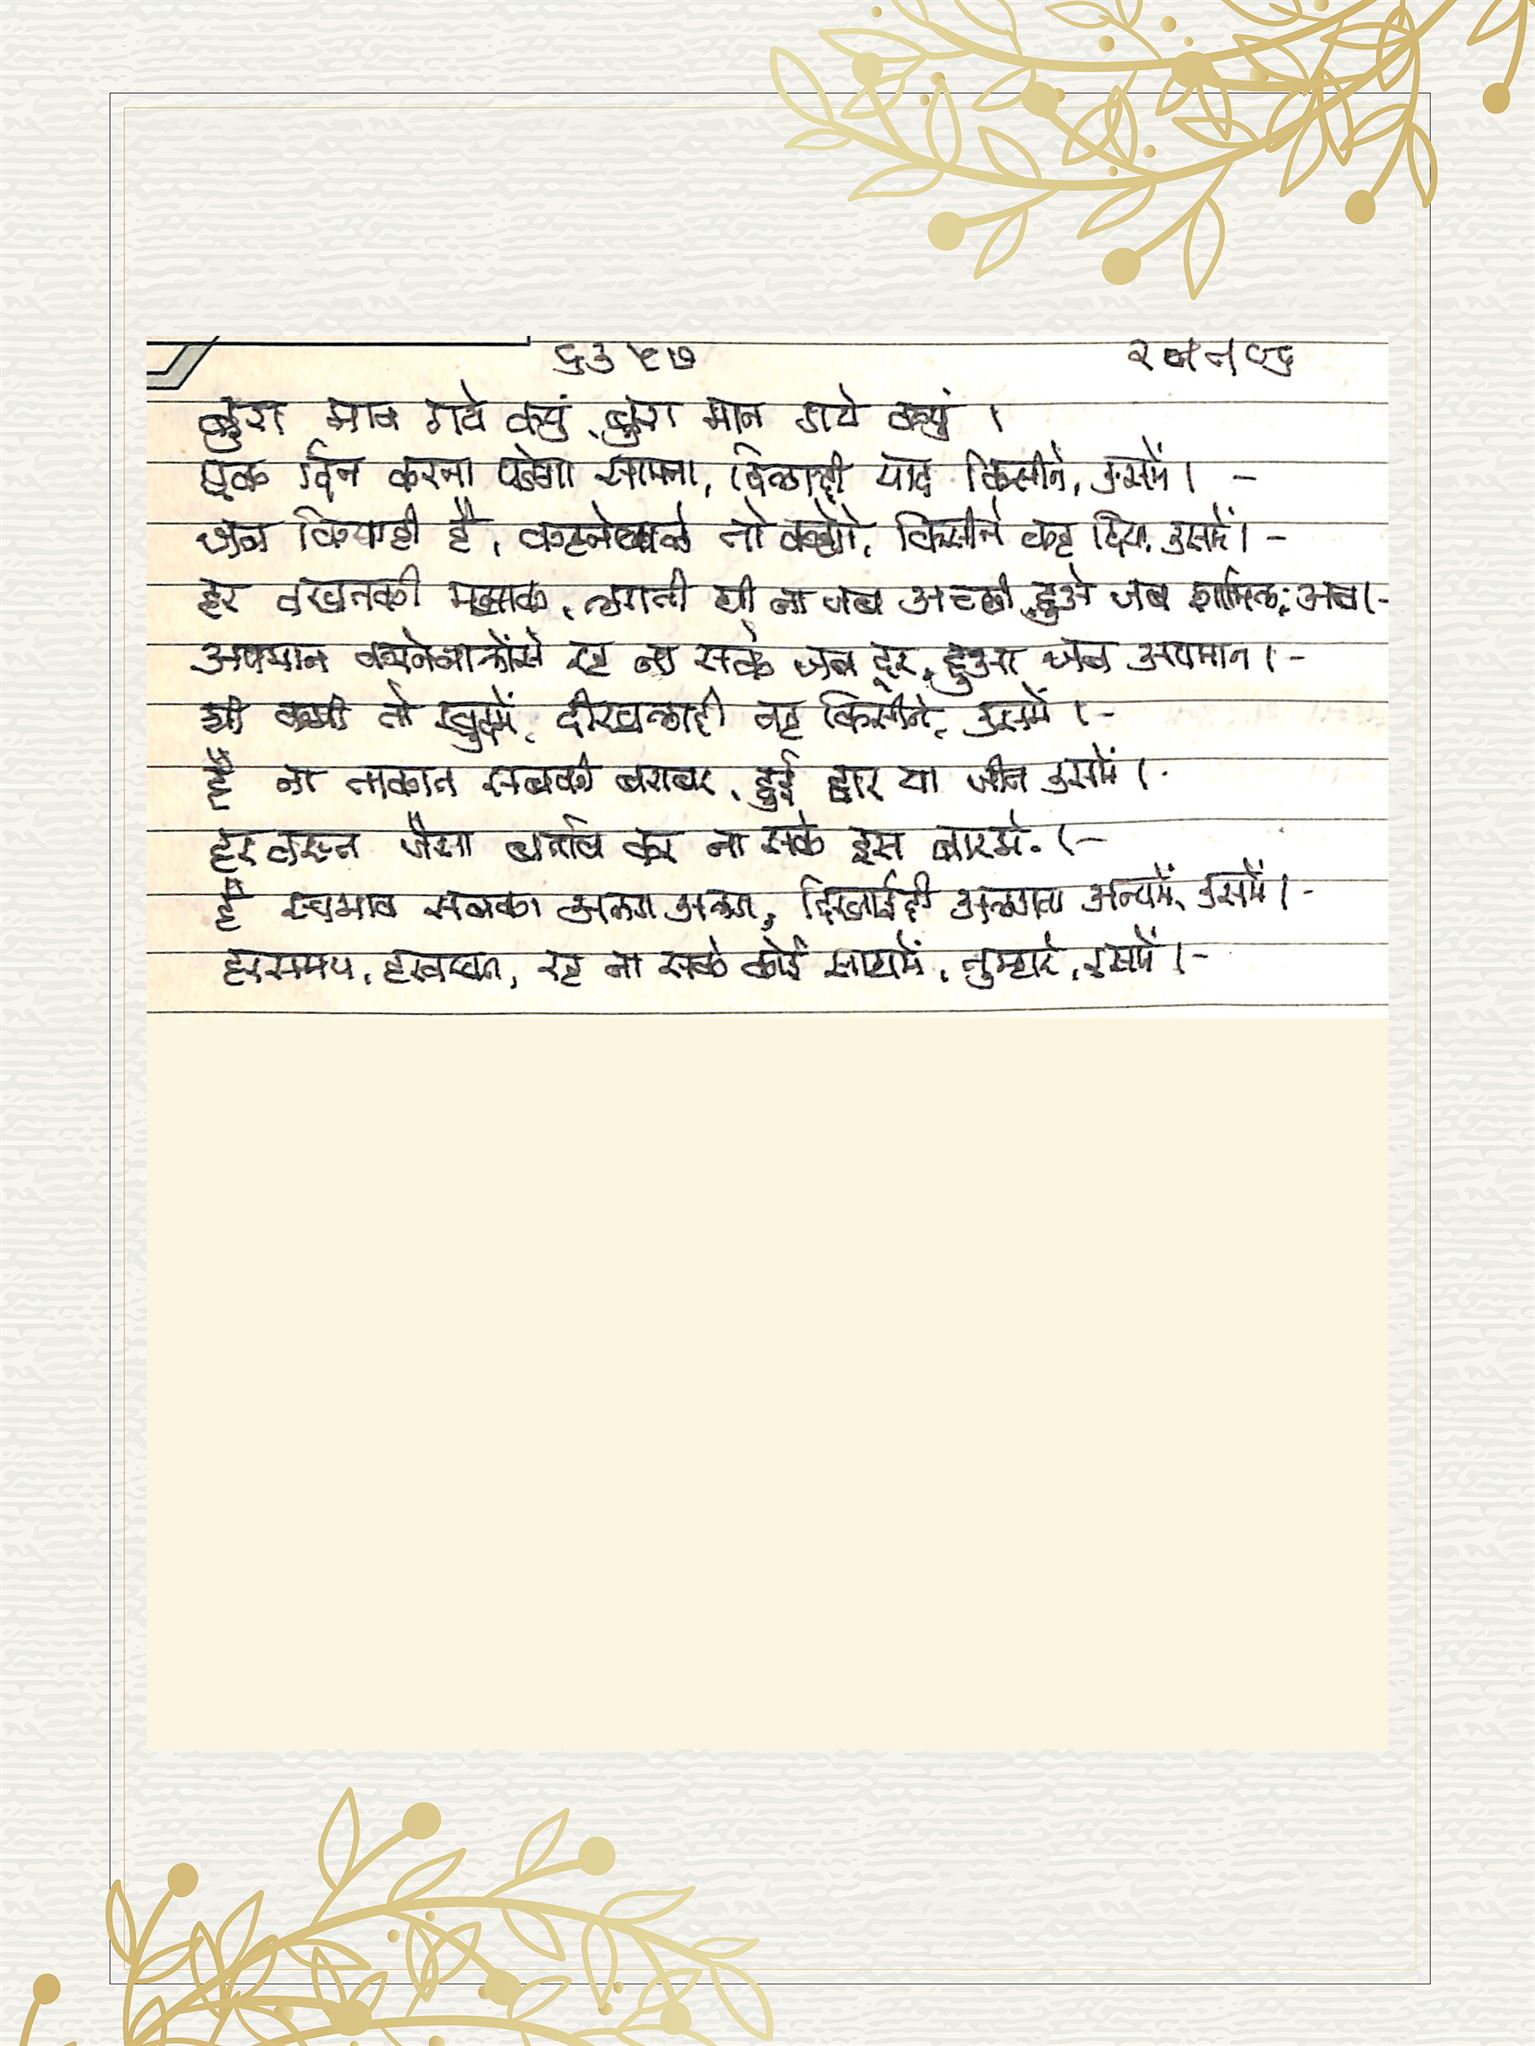 ६३५७
बुरा मान गये क्युं, बुरा मान गये क्युं ।
एक दिन करना पडेगा सामना, दिलादी याद किसीने, उसमें । -
जब कियाही है, कहनेवाले तो कहेंगे, किसीने कह दिया, उसमें । -
हर वखतकी मझाक, लगती थी ना जब अच्छी, हुओ जब शामिल; अब । -
अपमान करनेवालोंसे रह ना सके जब दूर, हुआ जब अपमान । -
थी कमी तो खुदमें, दीखलादी वह किसीने, उसमें । -
है ना ताकात सबकी बराबर, हुई हार या जीत उसमें । -
हरवख्त जैसा बर्ताव कर ना सके इस बारमें. । -
है स्वभाव सबका अलग अलग, दिखाईदी अलगता अन्यमें, उसमें । -
हरसमय, हरवखत, रह ना सके कोई साथमें, तुम्हारे, इसमें । -